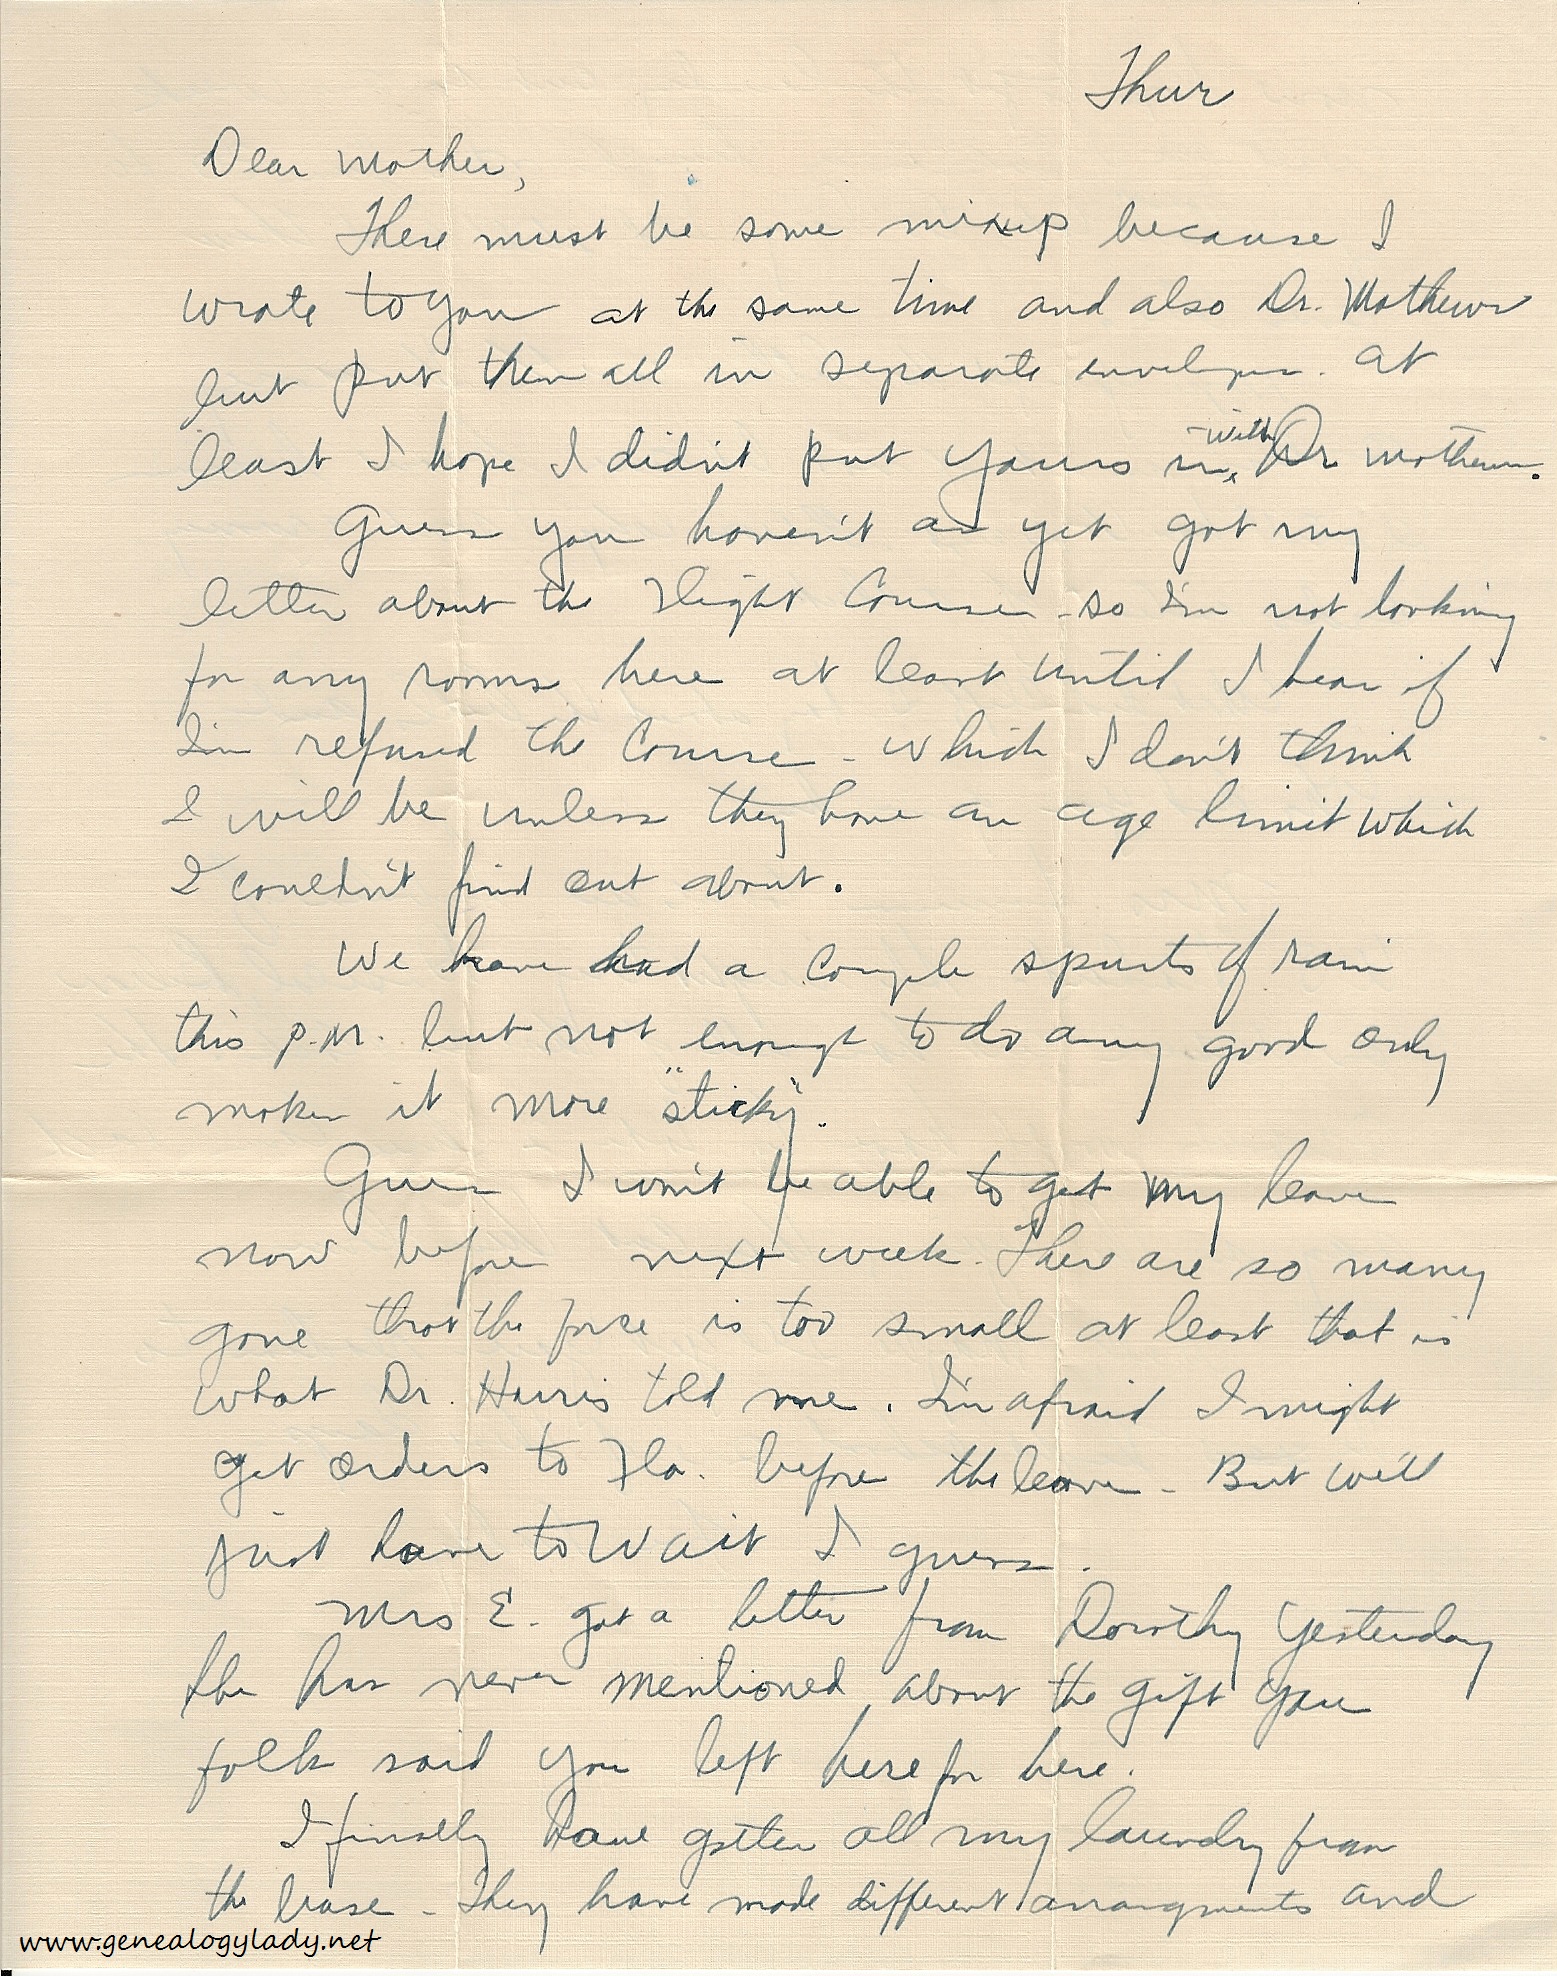 Thur
Dear Mother,
There must be some mixup because I
wrote to you at the same time and also Dr. Mathews
but put them all in separate envelopes. At
least I hope I didn't put yours in with Dr Mathews.
Guess you haven't as yet got my
letter about the Flight Course - so I'm not looking
for any rooms here at least until I hear if
I'm refused the Course - which I don't think
I will be unless they have an age limit which
I couldn't find out about.
We have had a couple spurts of rain
this p.m. but not enough to do any good only
makes it more "sticky".
Guess I won't be able to get my leave
now before next week. There are so many
gone that the force is too small at least that is
what Dr. Harris told me. I'm afraid I might
get orders to Fla. before the leave - But we'll
just have to wait I guess.
Mrs E. got a letter from Dorothy yesterday
She has never mentioned about the gift you
folks said you left here for here.
I finally have gotten all my laundry from
the base - They have made different arrangments and
www.genealogylady.net